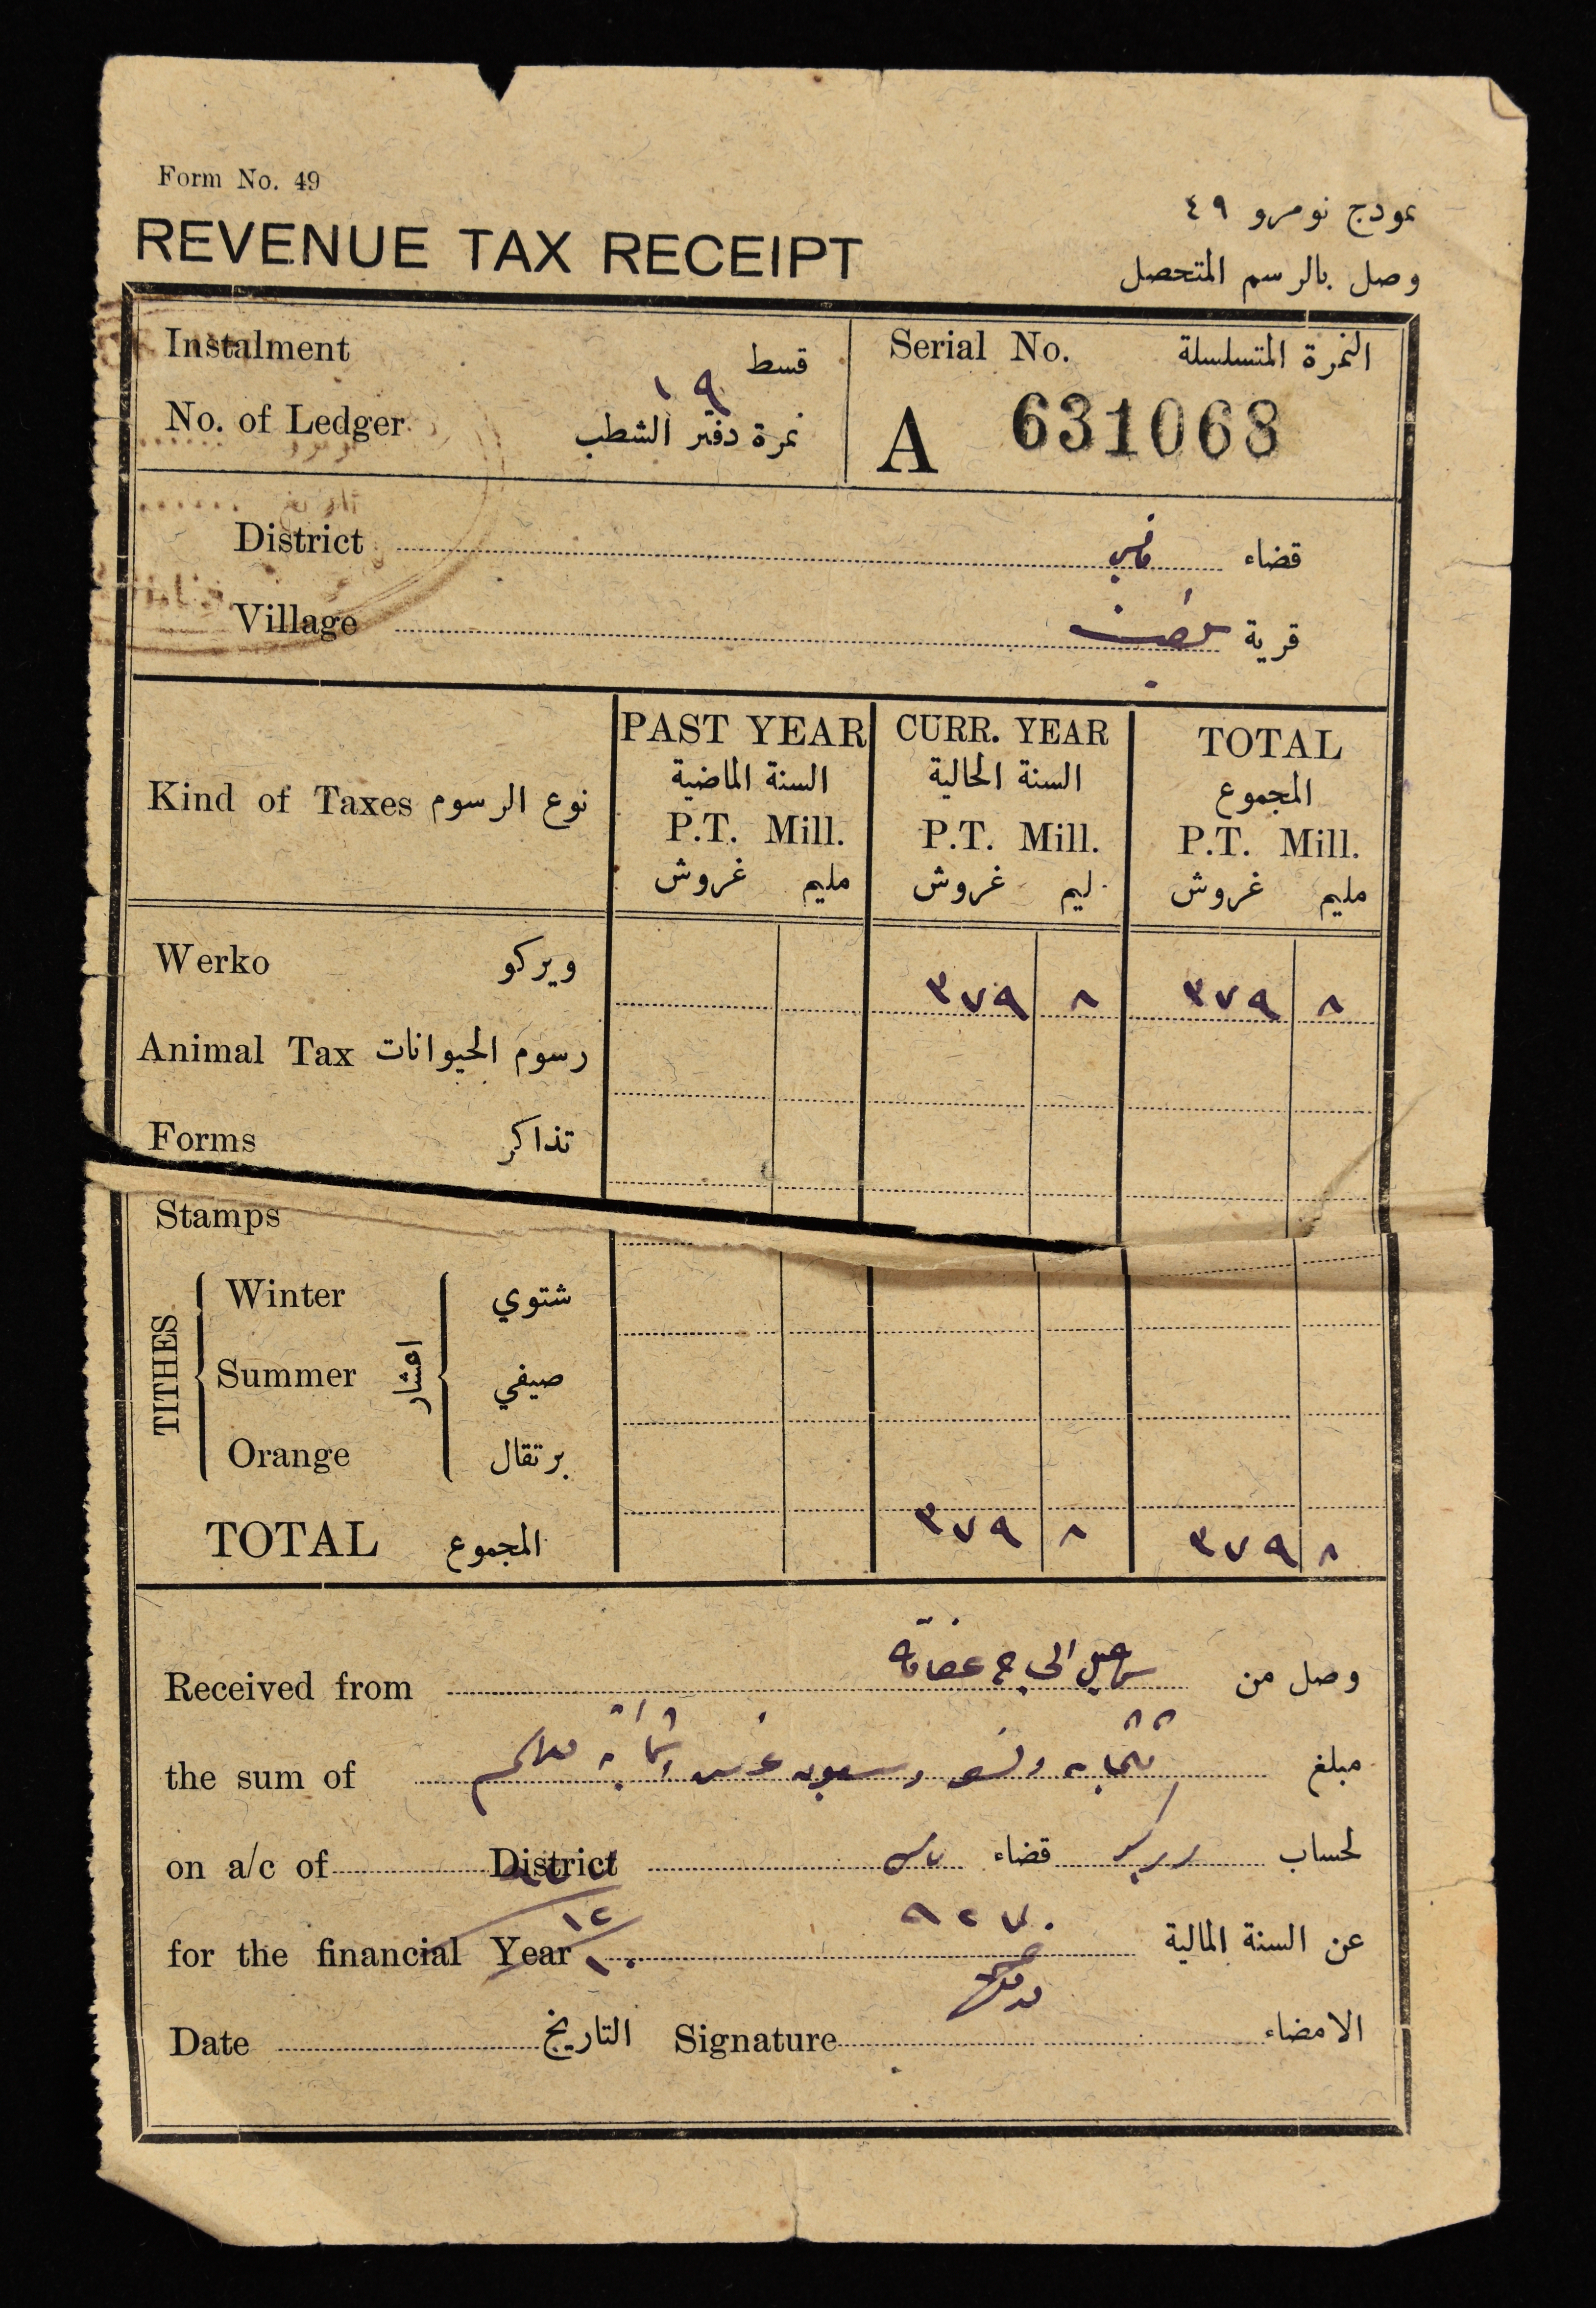 Form No. 49
نموذج نومرو ٤٩
REVENUE TAX RECEIPT
وصل بالرسم المتحصل
Instalment قسط
Serial No. النمرة المتسلسلة
No. of Ledger ١٩ نمرة دفتر الشطب
A 631068
تاريخ
District قضاء
Village قرية
Kind of Taxes نوع الرسوم
PAST YEAR CURR. YEAR TOTAL
السنة الماضية السنة الحالية المجموع
P.T. Mill. P.T. Mill. P.T. Mill.
غروش مليم غروش ليم غروش مليم
Werko ويركو ٣٧٩ ٨ ٣٧٩ ٨
Animal Tax رسوم الحيوانات
Forms تذاكر
Stamps
TITHES اعشار
Winter شتوي
Summer صيفي
Orange برتقال
TOTAL المجموع ٣٧٩ ٨ ٣٧٩ ٨
Received from الحاج وصل من
the sum of مبلغ
on a/c of District قضاء ويركو لحساب
for the financial Year ٩٢٧ عن السنة المالية
١٢
١٠
Date التاريخ Signature الامضاء